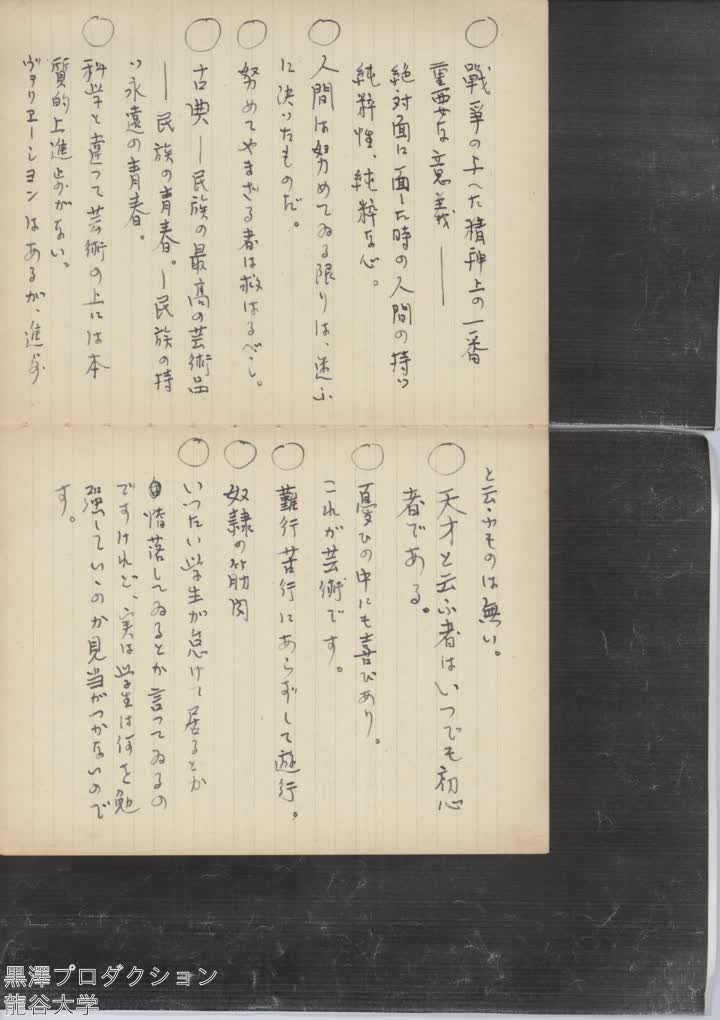 ○ 戰爭の与へた精神上の一番
重要な意義――
絶対面に面した時の人間の持つ
純粋性、純粋な心。
○ 人間は努めてゐる限りは、迷ふ
に決いたものだ。
○ 努めてやまざる者は救はるべし。
○ 古典―民族の最高の芸術品
―民族の青春。―民族の持
つ永遠の青春。
○ 科学と違つて芸術の上には本
質的上進歩がない。
ヴァリエーションはあるが、進歩
と云ふものは無い。
○ 天才と云ふ者はいつでも初心
者である。
○ 憂ひの中にも喜びあり。
これが芸術です。
○ 難行苦行にあらずして遊行。
○ 奴隷の筋肉
○ いつたい学生が怠けて居るとか
惰落してゐるとか言つてゐるの
ですけれど、実は学生は何を勉
強していゝのか見当がつかないので
す。
黒澤プロダクション
龍谷大学